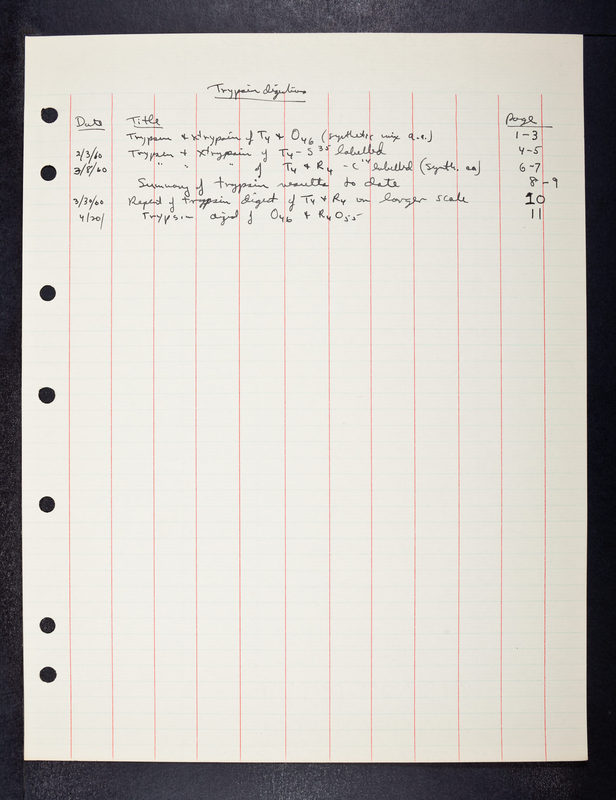 Trypsin digestions
Date Title Page
Trypsin & xtrypsin of T4 & O46 (synthetic mix a.a.) 1-3
2/3/60 Trypsin + xtrypsin of T4 - S35 labelled 4-5
3/8/60 " " " of T4 & R4 - C14 labelled (synth. aa) 6-7
Summary of trypsin results to date 8-9
3/30/60 Repeat of trypsin digest of T4 & R4 on larger scale 10
4/20/ Trypsin digest of O46 & R4O55 11